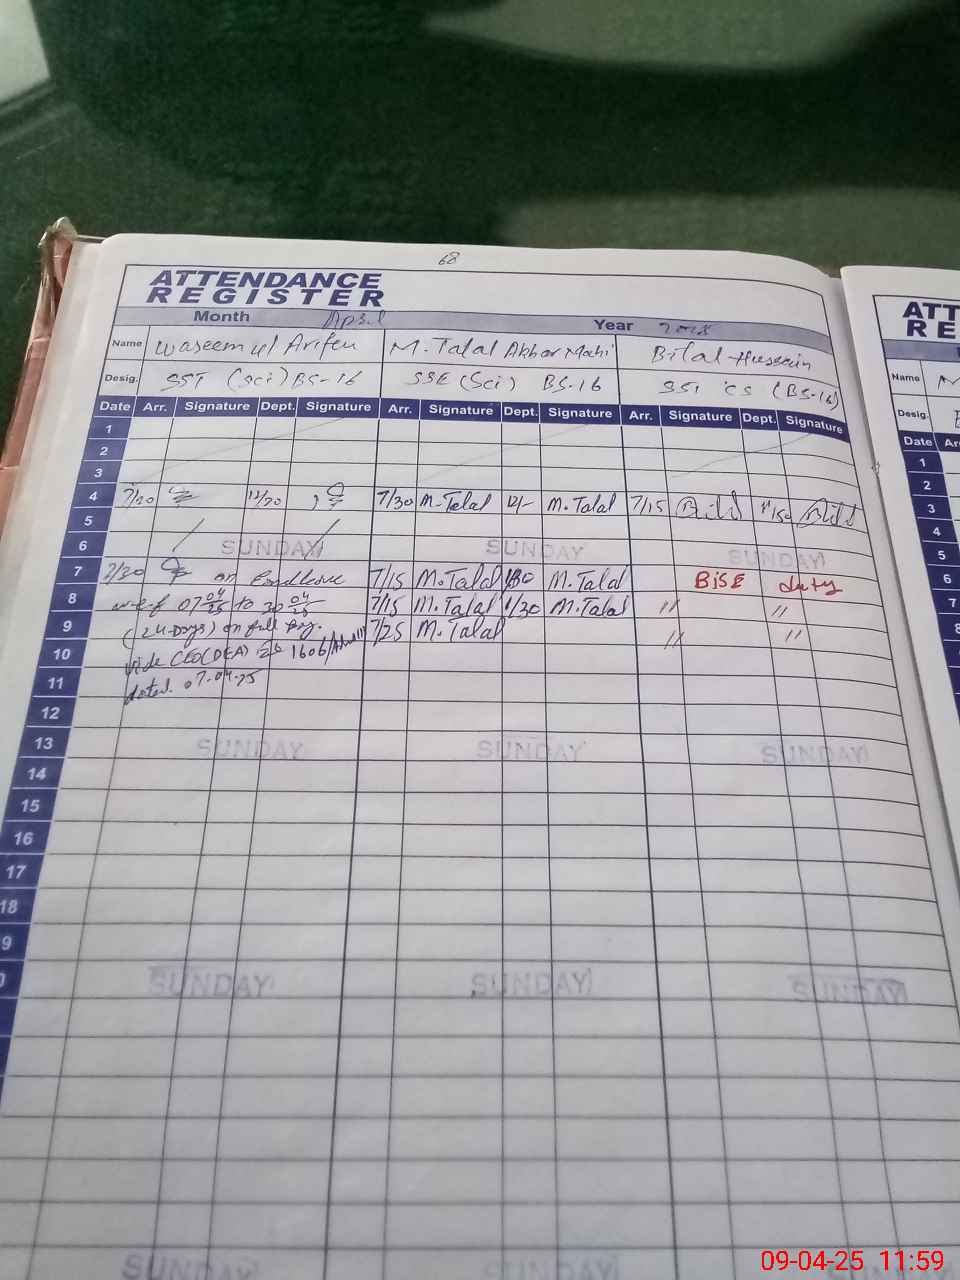 68
ATTENDANCE
REGISTER
Month April Year
Name Waseem ul Arifen M. Talal Akbar Mahi Bilal Hussain
Desig. SST (Sci) BS-16 SSE (Sci) BS-16 SST CS (BS-16)
Date Arr. Signature Dept. Signature Arr. Signature Dept. Signature Arr. Signature Dept. Signature
1
2
3
4 7/30 12/30 7/30 M.Talal 12/- M.Talal 7/15
5
6 SUNDAY SUNDAY SUNDAY
7 7/30 on 7/15 M.Talal 1/30 M.Talal BISE duty
8 w-e-f 07 04/25 to 30 04/25 7/15 M.Talal 1/30 M.Talal " "
9 (24-Days) on full pay. 7/25 M.Talal " "
10 vide CEO(DEA) 1606/
11 dated. 07-04-25
12
13 SUNDAY SUNDAY SUNDAY
14
15
16
17
18
9
0 SUNDAY SUNDAY SUNDAY
SUNDAY SUNDAY SUNDAY
ATT
RE
Name
Desig.
Date Arr
1
2
3
4
5
6
7
8
09-04-25 11:59